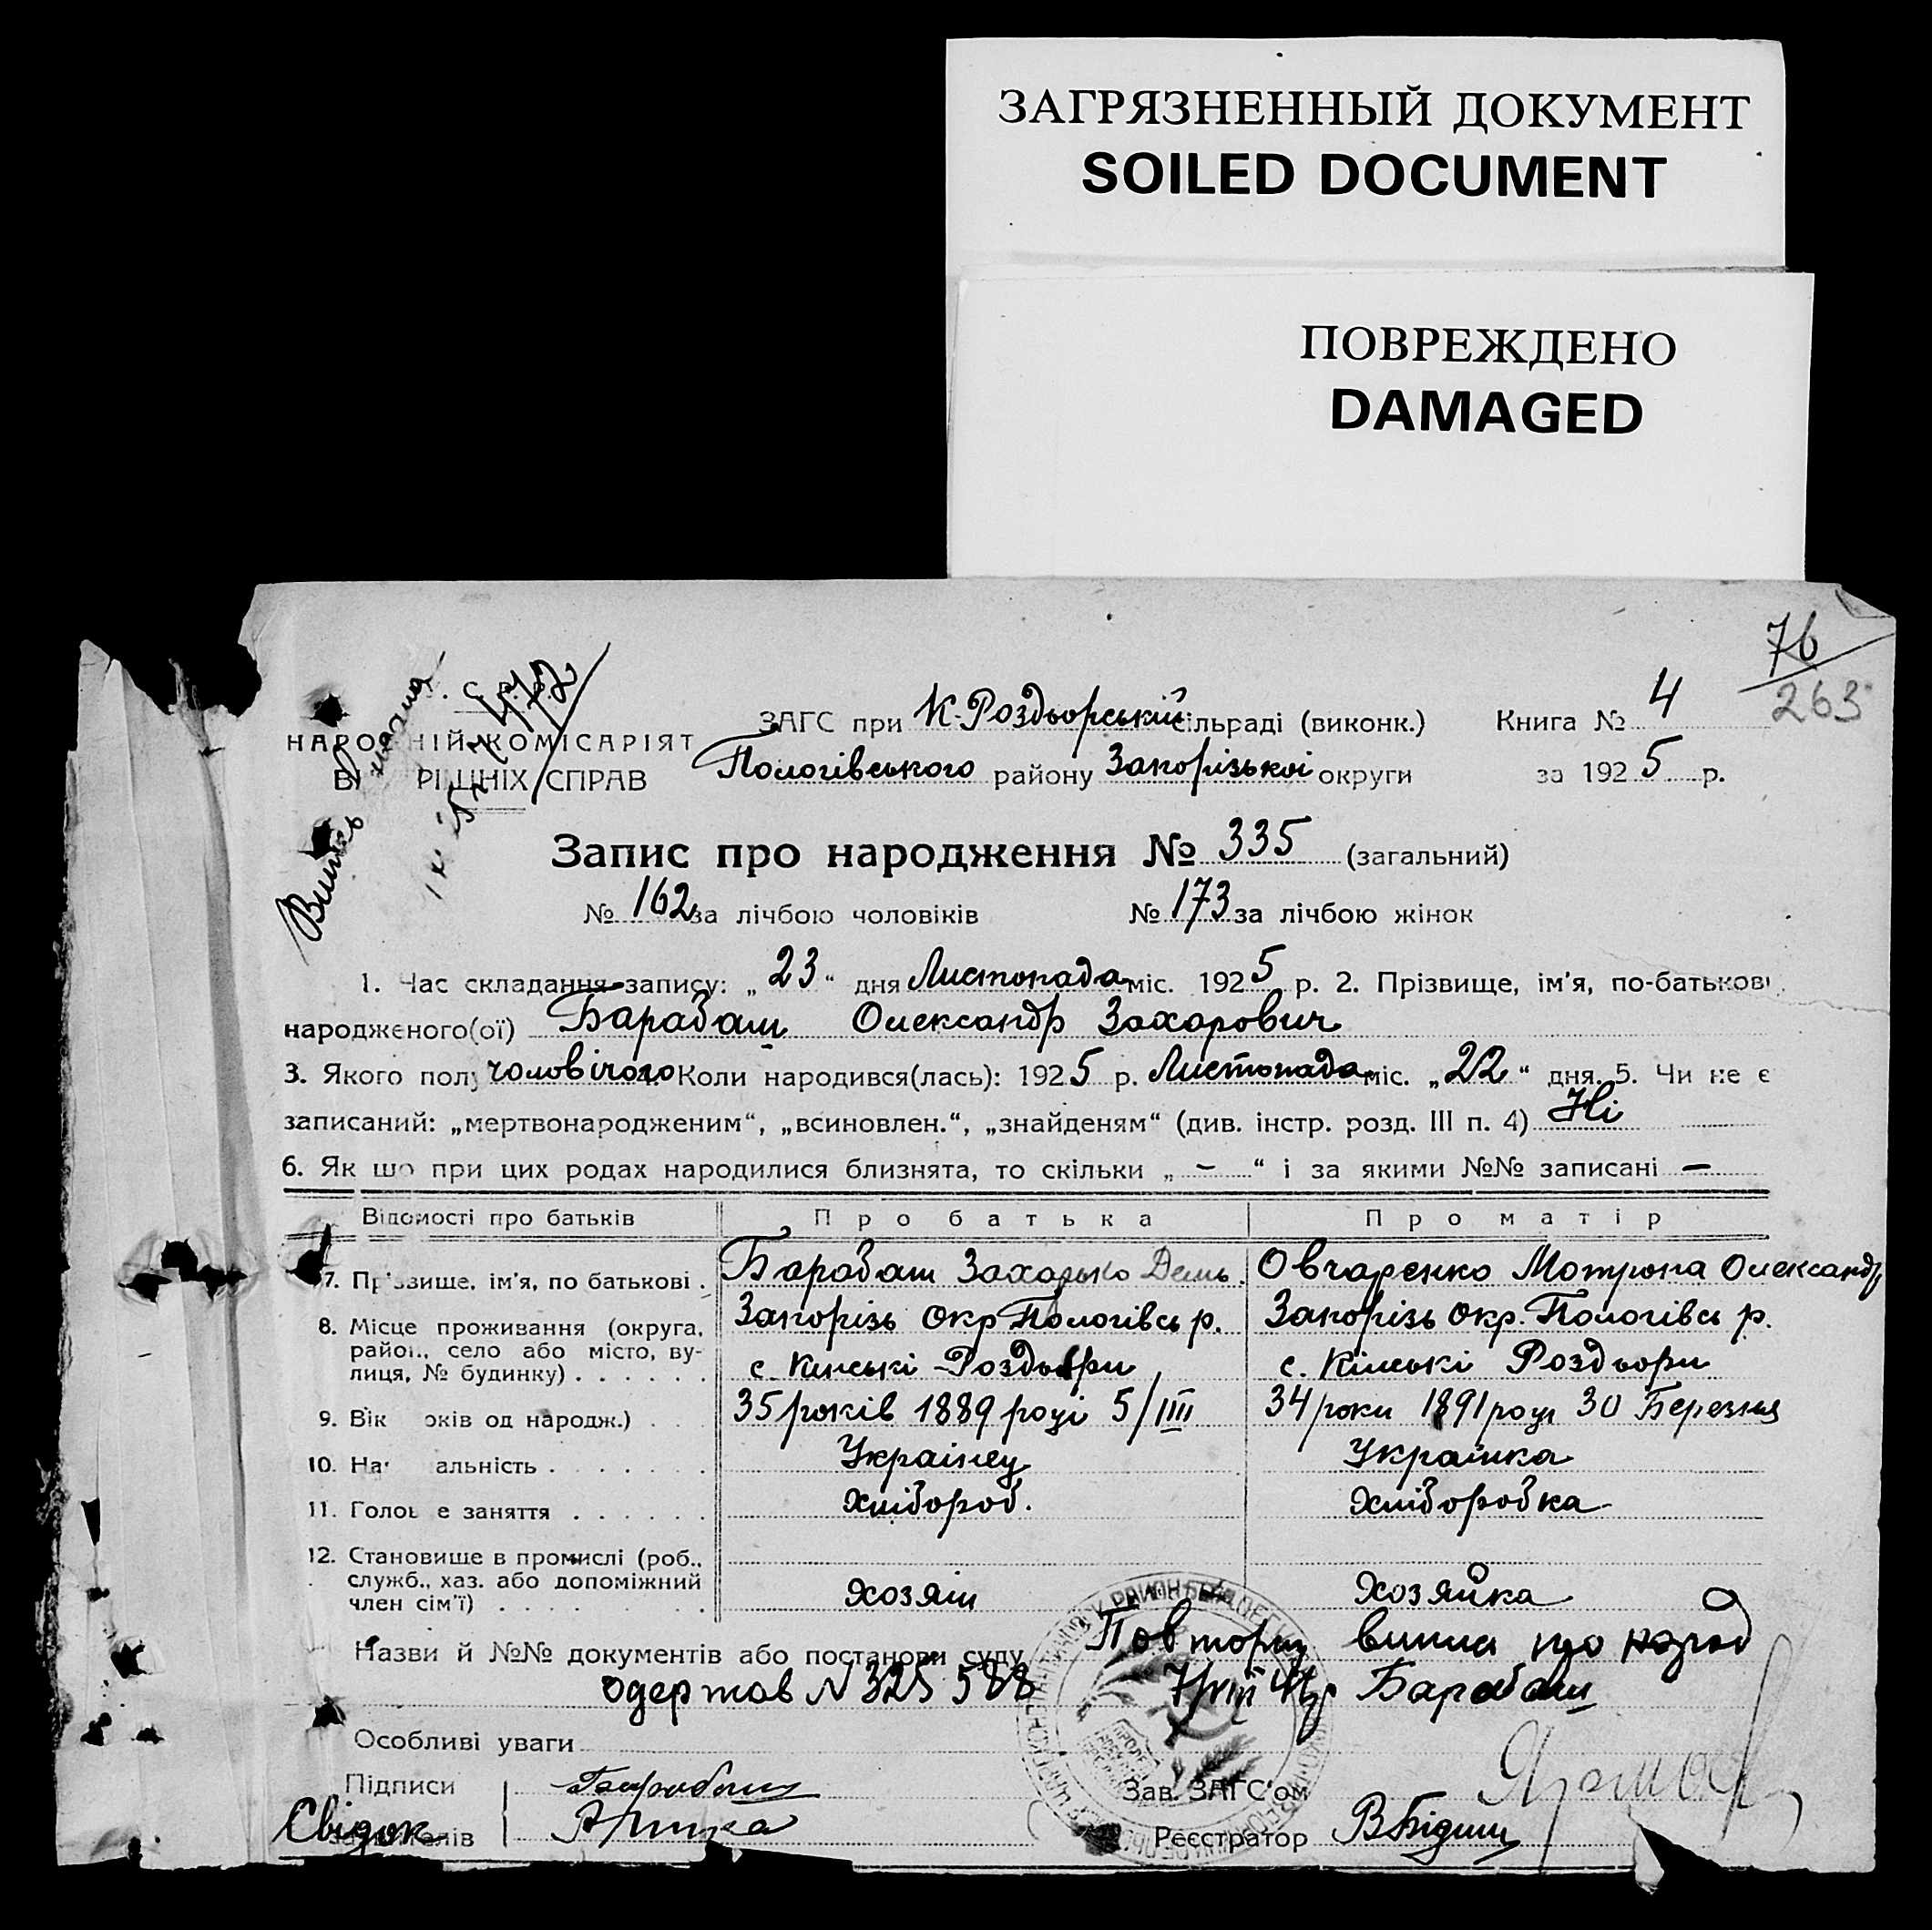 ЗАГРЯЗНЕННЫЙ ДОКУМЕНТ
SOILED DOCUMENT
ПОВРЕЖДЕНО
DAMAGED
76
263
ЗАГС при К-Роздьорській сільраді (виконк.) Книга № 4
НАРО НІЙ КОМІСАРІЯТ
Пологівського району Запорізької округи за 1925 р.
В РІШНІХ СПРАВ
Запис про народження № 335 (загальний)
№ 162 за лічбою чоловіків № 173 за лічбою жінок
1. Час складання запису: „23“ дня Листопада міс. 1925 р. 2. Прізвище, ім’я, по-батькові
народженого(ої) Барабаш Олександр Захарович
3. Якого полу чоловічого Коли народився(лась): 1925 р. Листопада міс. „22“ дня. 5. Чи не є
записаний: „мертвонародженим“, „всиновлен.“, „знайденям“ (див. інстр. розд. III п. 4) Ні
6. Як що при цих родах народилися близнята, то скільки „ – “ і за якими №№ записані –
Відомості про батьків Про батька Про матір
7. Прізвище, ім’я, по батькові . Барабаш Захарько Демь. Овчаренко Мотрона Олександр
8. Місце проживання (округа, Запорізь Окр Пологівсь р. Запорізь Окр. Пологівсь р.
район, село або місто, ву-
лиця, № будинку) . . . . . . с. Кінські Роздьори с. Кінські Роздьори
9. Вік оків од народж.) . . 35 років 1889 році 5/III 34 роки 1891 році 30 Березня
10. На альність . . . . . . . Українец Українка
11. Голов е заняття . . . . . . Хлібороб. Хліборобка
12. Становище в промислі (роб.,
служб., хаз. або допоміжний
член сім’ї) . . . . . . . . Хозяїн Хозяйка
Назви й №№ документів або постанови суду Повторну випис про народ
одержав N 325 588 Барабаш
Особливі уваги
Підписи Барабаш Зав. ЗАГС’ом
Свідок Реєстратор